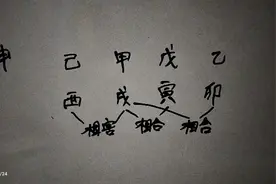 申 己 甲 戊 乙
酉 戌 寅 卯
相害 相合 相合
/24